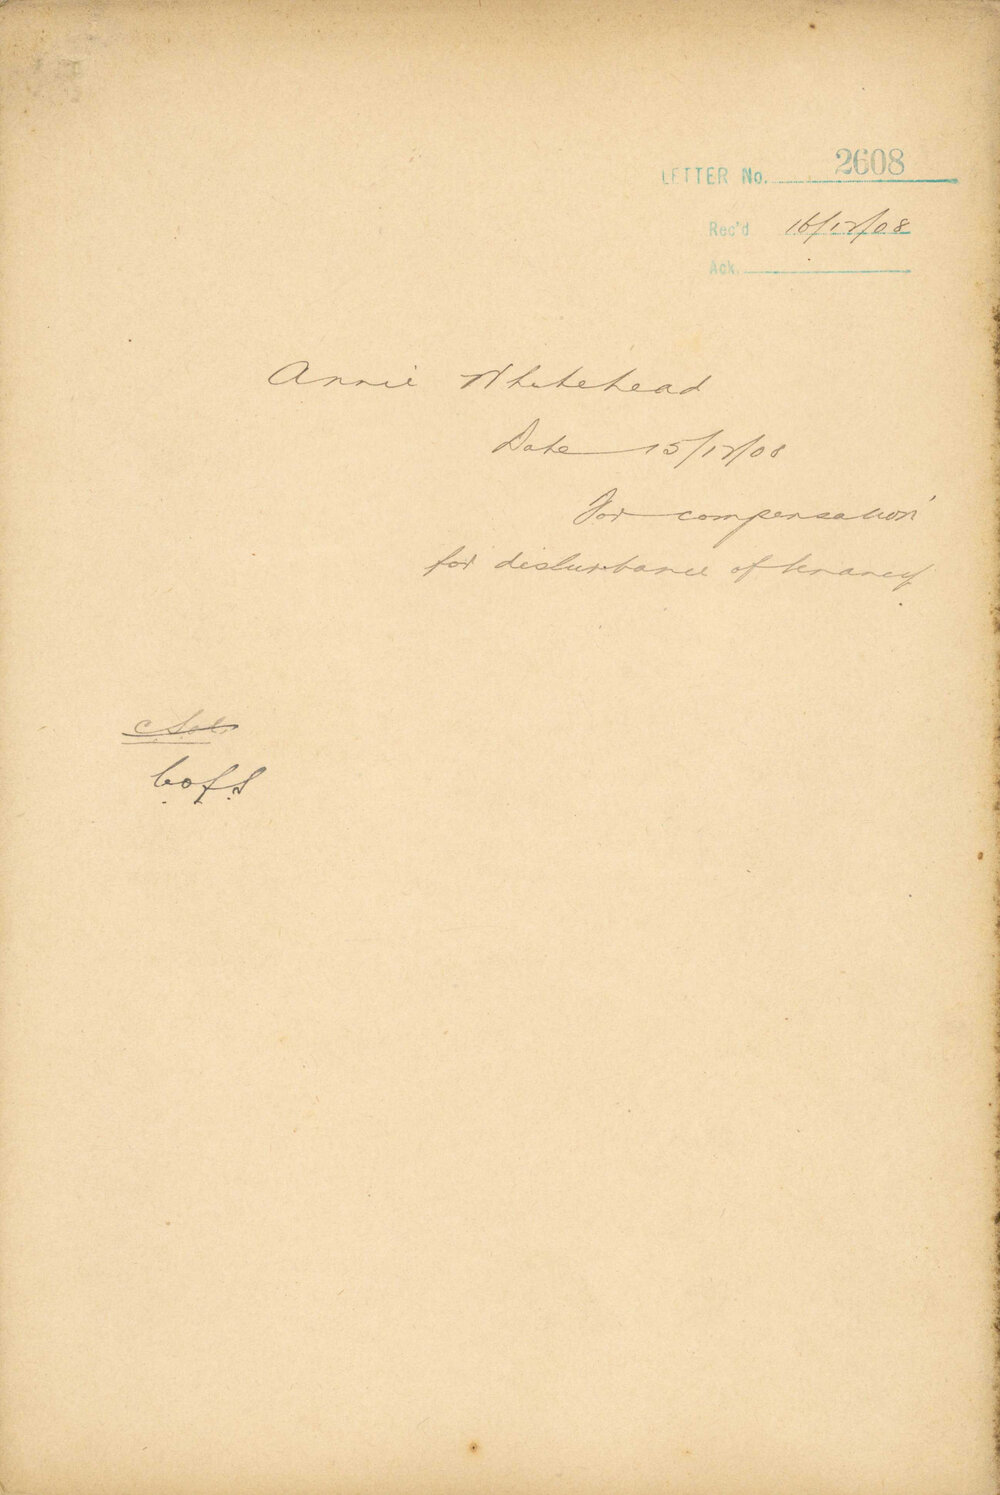 LETTER No. 2608
Rec'd 16/12/08
Ack.
Annie Whitehead
Date 15/12/08
For compensation
for disturbance of tenancy
C of S